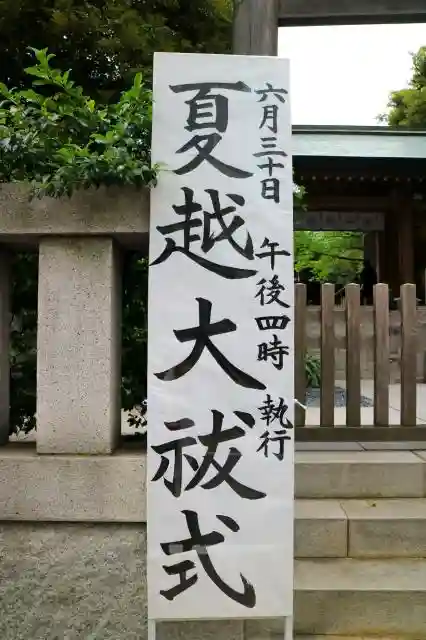 六月三十日 午後四時 執行
夏越大祓式